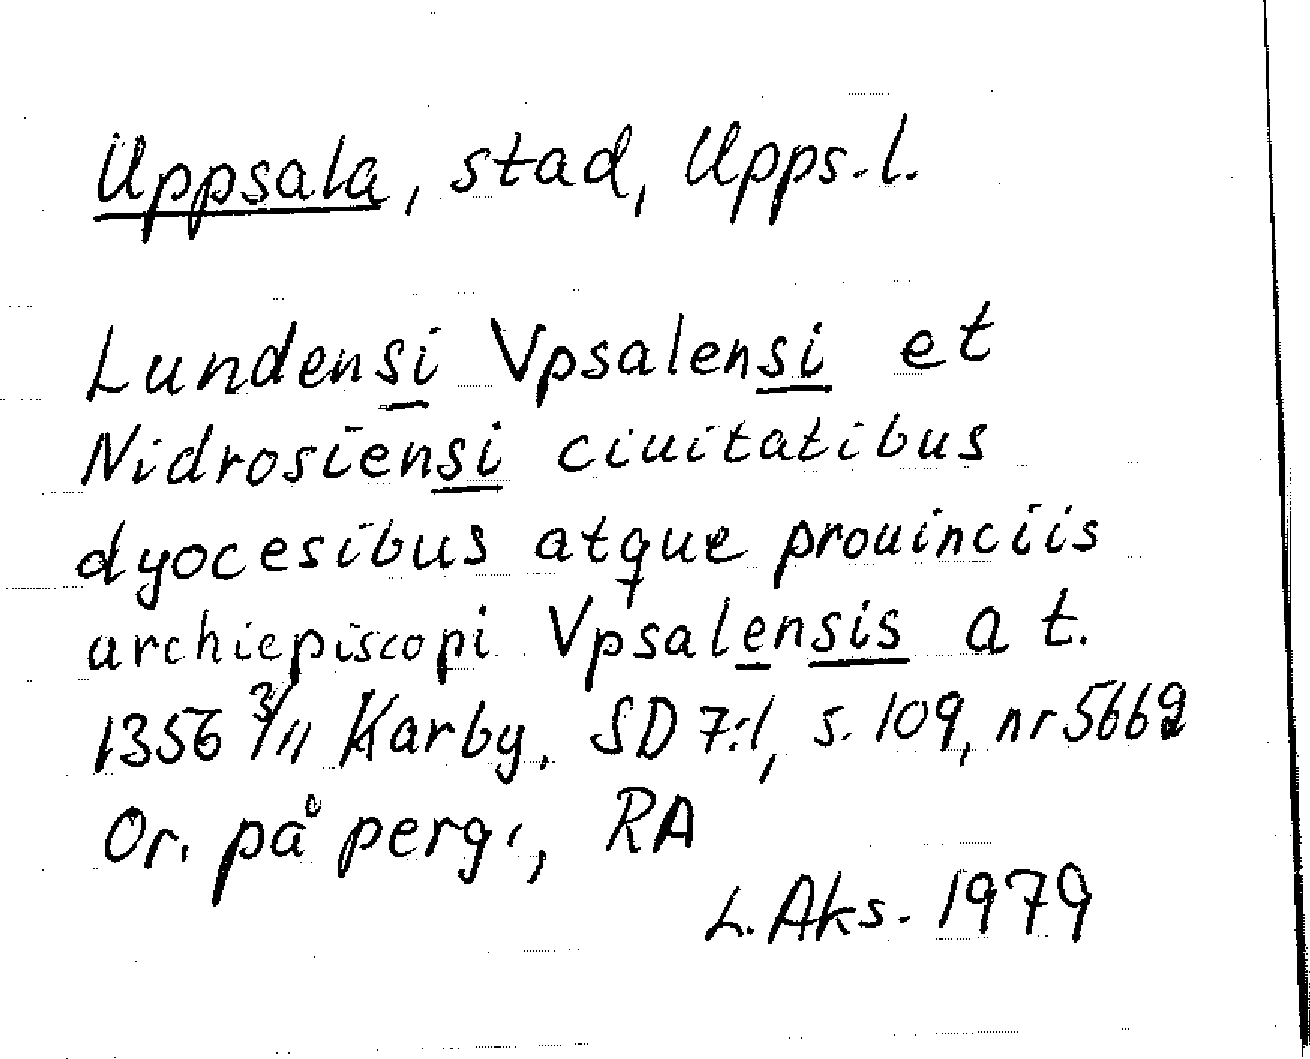 Uppsala, stad, Upps.l.
Lundensi Vpsalensi et
Nidrosiensi ciuitatibus
dyocesibus atque prouinciis
archiepiscopi Vpsalensis a t.
1356 3/11 Karby. SD 7:1, s. 109, nr 5662
Or. på perg., RA
L. Aks. 1979